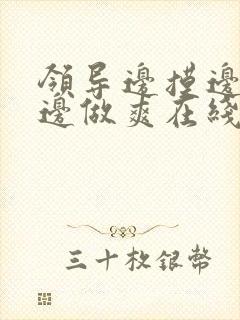 領导邊摸邊
邊做爽在綫
三十枚銀幣